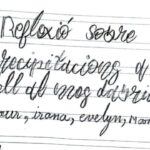 Reflexió sobre
recipitacions d
ell al mos d'abril
our, irana, evelyn, Mar